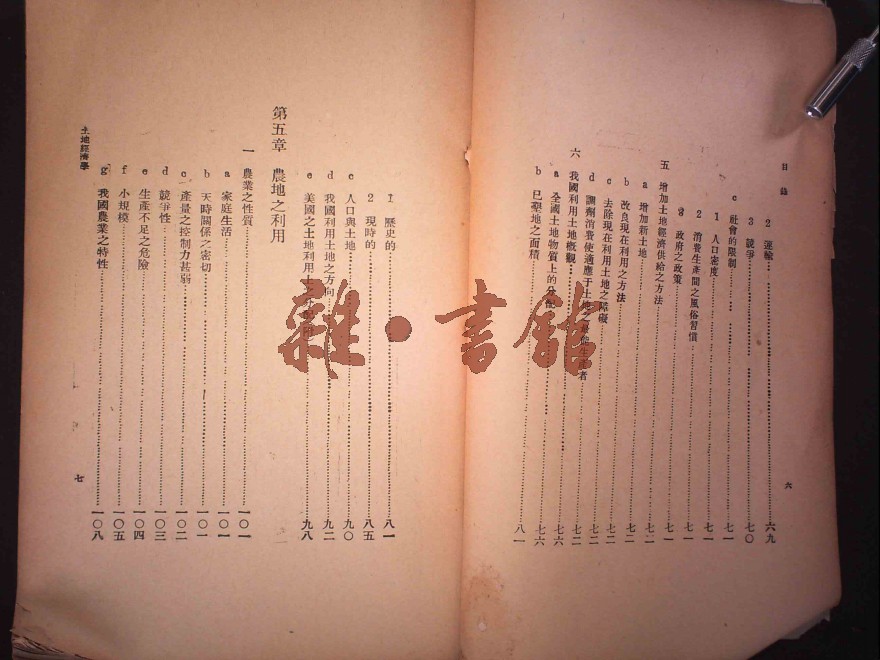 目錄
2 運輸 六九
3 競爭 七〇
c 社會的限制 七一
1 人口密度 七一
2 消養生產間之風俗習慣 七一
g 政府之政策 七一
五 增加土地經濟供給之方法
a 增加新土地 七二
b 改良現在利用之方法 七二
c 去除現在利用土地之障礙 七二
d 調劑消養使適應于土地之
六 我國利用土地槪觀 七二
a 全國土地物質上的分配 七六
b 已墾地之面積 八一
六
1 歷史的 八一
2 現時的 八五
c 人口與土地 九〇
d 我國利用土地之方向 九二
e 美國之土地利用 九八
第五章 農地之利用
一 農業之性質 一〇一
a 家庭生活 一〇一
b 天時關係之密切 一〇一
c 產量之控制力甚弱 一〇二
d 競爭性 一〇三
e 生產不足之危險 一〇四
f 小規模 一〇五
g 我國農業之特性 一〇八
土地經濟學
七
雜·書館